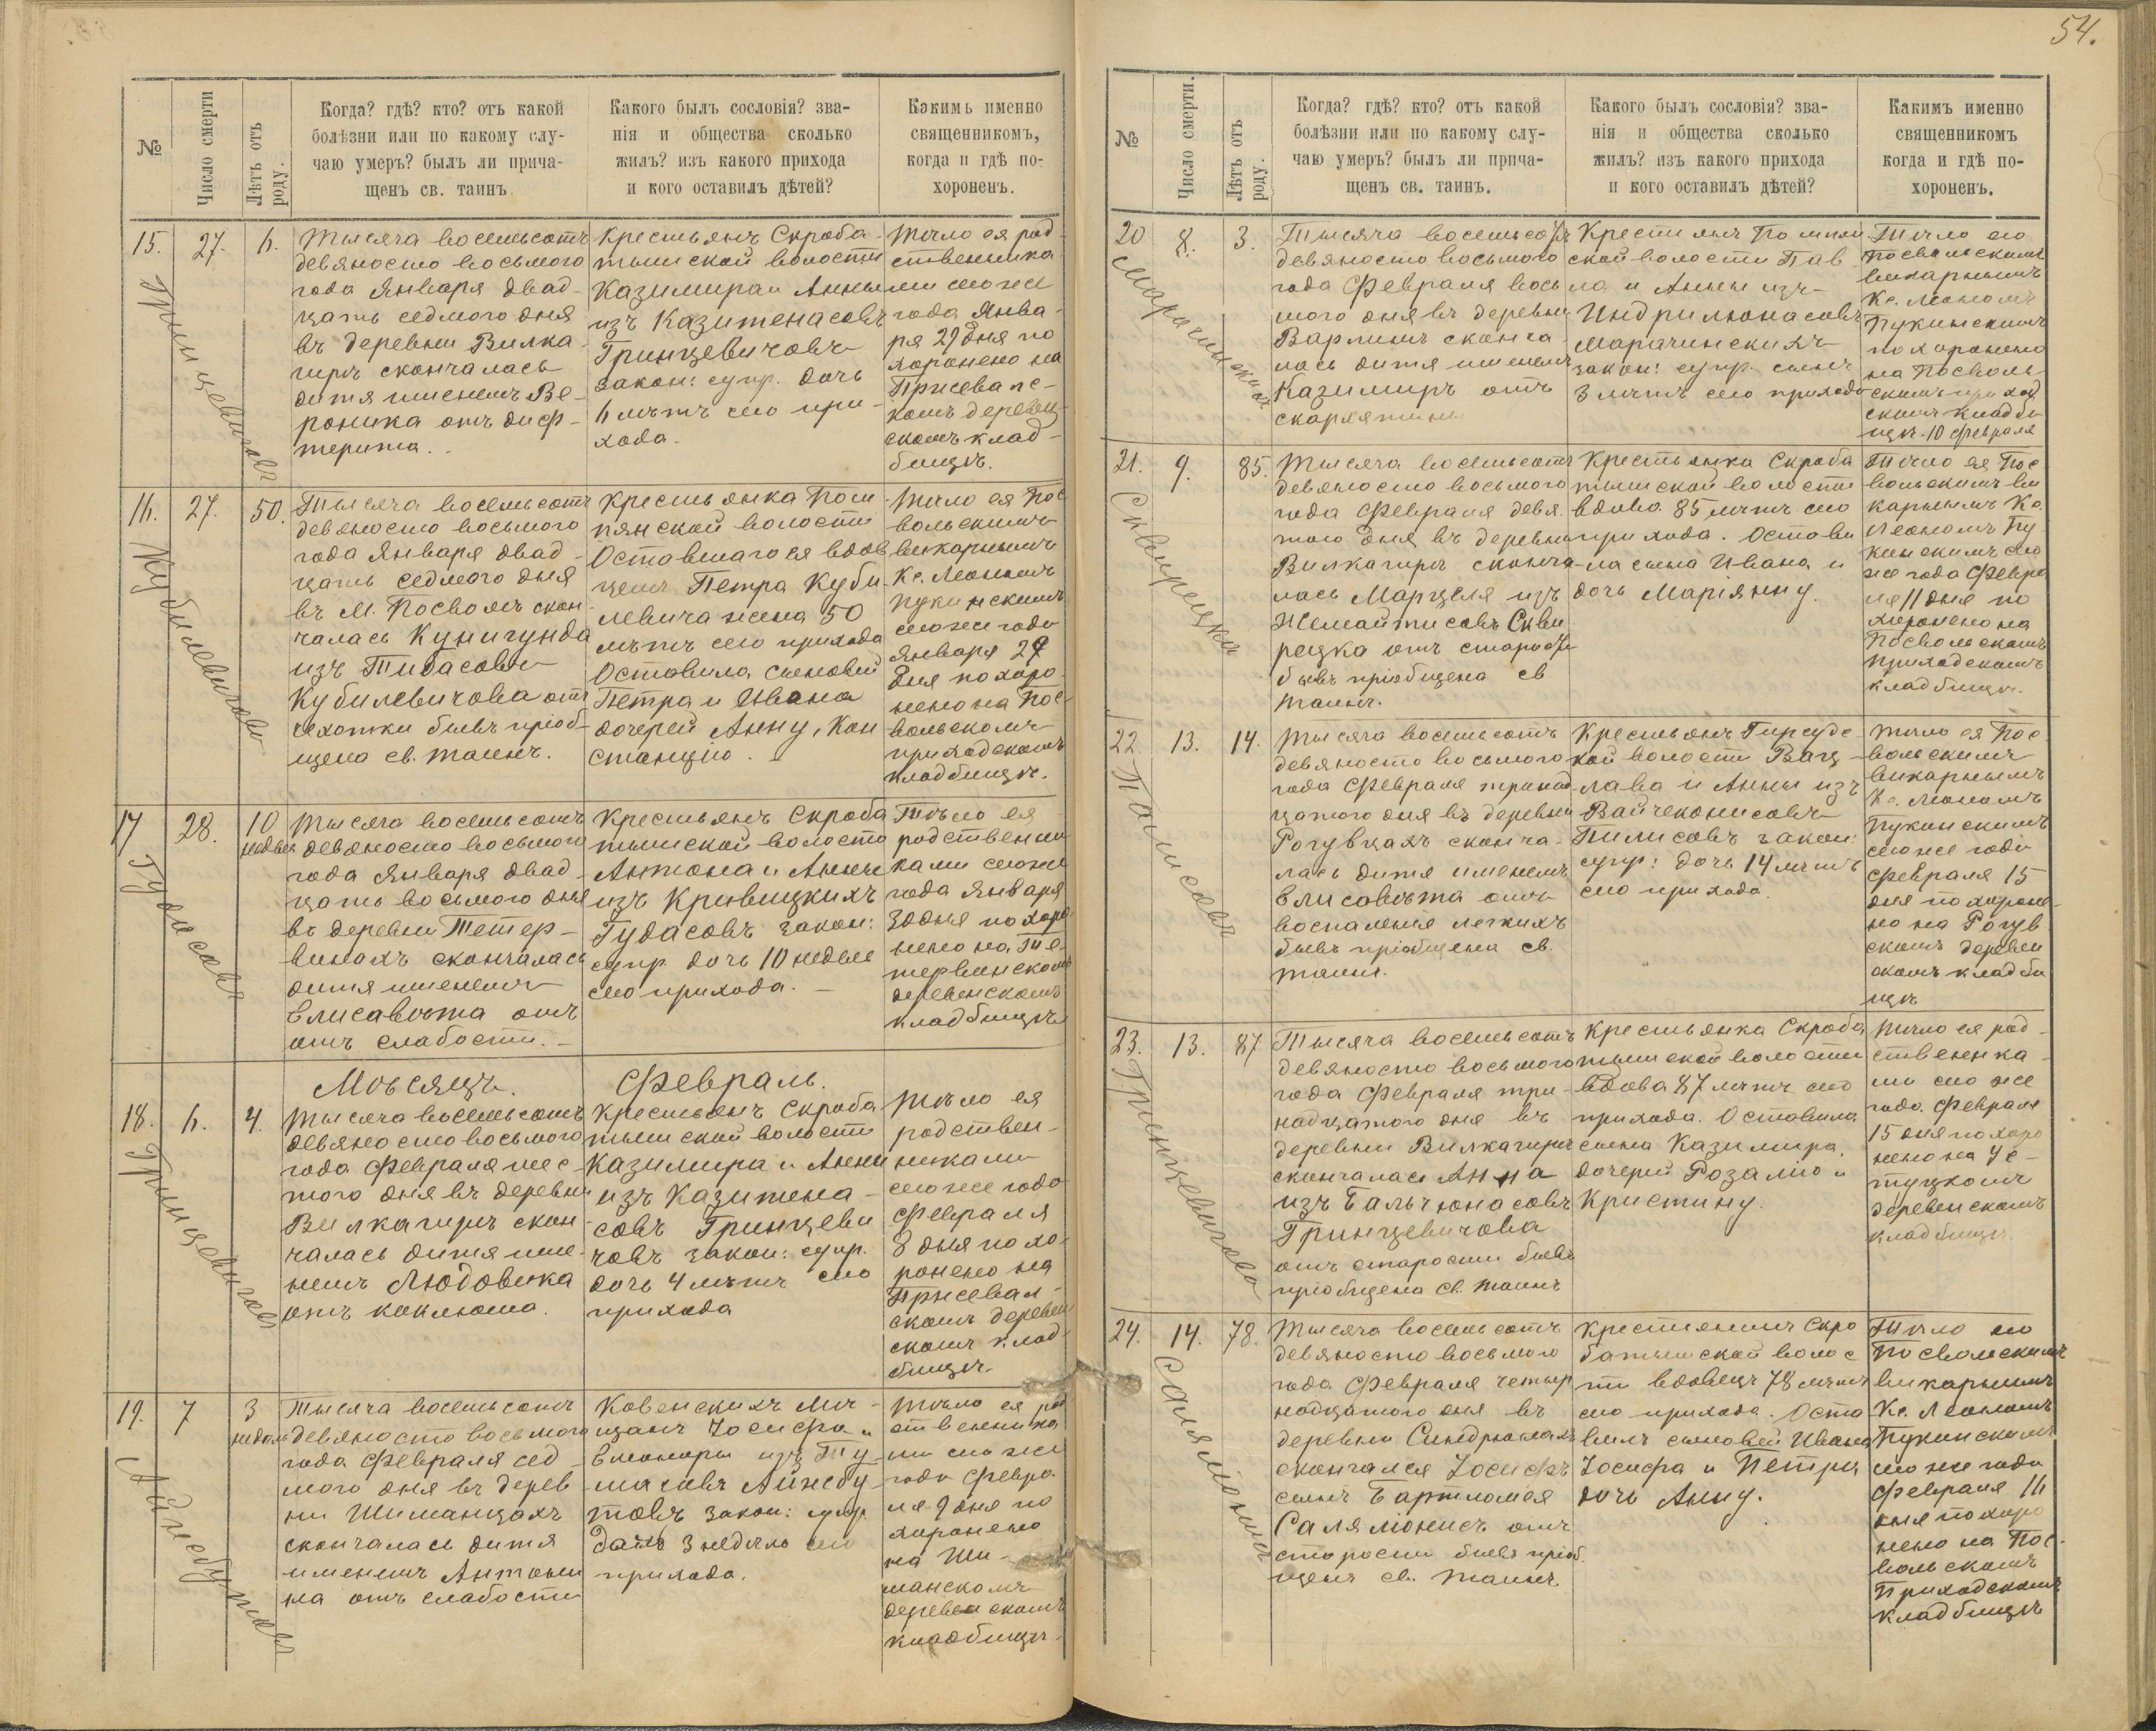 54.
№
Число смерти
Лѣтъ отъ роду.
Когда? гдѣ? кто? отъ какой
болѣзни или по какому слу-
чаю умеръ? былъ ли прича-
щенъ св. таинъ.
Какого былъ сословія? зва-
нія и общества сколько
жилъ? изъ какого прихода
и кого оставилъ дѣтей?
Какимъ именно
священникомъ,
когда и гдѣ по-
хороненъ.
15.
27.
6.
Гринцевичовъ
Тысяча восемьсотъ
девяносто восьмого
года Января двад-
цать седмого дня
въ деревни Вилка-
гирѣ скончалась
дитя именемъ Ве-
роника отъ диф-
терита.
Крестьянъ Скроба-
тышской волости
Казимира и Анны
изъ Казитенасовъ
Гринцевичовъ
закон: супр. дочь
6 лѣтъ сего при-
хода.
Тѣло ея род-
ственника
ми сего же
года Янва-
ря 29 дня по
хоронено на
Прысевальс-
комъ деревен-
скомъ клад-
бищѣ.
16.
27.
50.
Кубилевичова
Тысяча восемьсотъ
девяносто восьмого
года Января двад-
цать седмого дня
въ М. Посволѣ скон-
чалась Кунигунда
изъ Тидасовъ
Кубилевичова отъ
чахотки бывъ пріоб-
щена св. таинъ.
Крестьянка Пом-
пянской волости
Оставшагося вдов
цемъ Петра Куби-
левича жена 50
лѣтъ сего прихода
Оставила сыновей
Петра и Ивана
дочерей Анну, Кон
станцію.
Тѣло ея Пос
вольскимъ
викарнымъ
Кс. Леономъ
Пукинскимъ
сего же года
Января 29
дня похоро-
нено на Пос-
вольскомъ
приходскомъ
кладбищѣ.
17
28.
10
недѣль
Гудасовъ
Тысяча восемьсотъ
девяносто восьмого
года Января двад-
цать восьмого дня
въ деревни Тетер-
винахъ скончалась
дитя именемъ
Елисавѣта отъ
отъ слабости.
Крестьянъ Скроба
тышской волости
Антона и Анны
изъ Кривицкихъ
Гудасовъ закон:
супр. дочь 10 недѣль
сего прихода.
Тѣло ея
родственни
ками сего же
года Января
30 дня похоро
нено на Те-
тервинскомъ
деревенскомъ
кладбищѣ
Мѣсяцъ. Февраль.
18.
6.
4.
Гринцевичовъ
Тысяча восемьсотъ
девяносто восьмого
года Февраля шес-
того дня въ деревни
Вилкагирѣ скон-
чалась дитя име-
немъ Людовика
отъ коклюша.
Крестьянъ Скроба
тышской волости
Казимира и Анны
изъ Казитена-
совъ Гринцеви
човъ закон: супр.
дочь 4 лѣтъ сего
прихода
Тѣло ея
родствен-
никами
сего же года
Февраля
8 дня похо-
ронено на
Прысеваль-
скомъ деревен
скомъ клад-
бищѣ.
19.
7
3
недѣль
Айнебутовъ
Тысяча восемьсотъ
девяносто восьмого
года Февраля сед-
мого дня въ дерев
ни Шиманцахъ
скончалась дитя
именемъ Антони
на отъ слабости
Ковенскихъ Мѣ-
щанъ Іосифа и
Елеоноры изъ Ту-
масовъ Айнебу-
товъ закон: супр.
дочь 3 недѣль сего
прихода.
Тѣло ея род
ственника
ми сего же
года Февра
ля 9 дня по
хоронено
на Ши-
манскомъ
деревенскомъ
кладбищѣ.
№
Число смерти.
Лѣтъ отъ роду.
Когда? гдѣ? кто? отъ какой
болѣзни или по какому слу-
чаю умеръ? былъ ли прича-
щенъ св. таинъ.
Какого былъ сословія? зва-
нія и общества сколько
жилъ? изъ какого прихода
и кого оставилъ дѣтей?
Какимъ именно
священникомъ
когда и гдѣ по-
хороненъ.
20
8.
3.
Марачинскихъ
Тысяча восемьсотъ
девяносто восьмого
года Февраля вось
мого дня въ деревни
Варлинѣ сконча
лась дитя именемъ
Казимиръ отъ
скарлятины
Крестьянъ Помпян
ской волости Пав
ла и Анны изъ
Индрилюнасовъ
Марачинскихъ
закон: супр. сынъ
3 лѣтъ сего прихода
Тѣло его
Посвольскимъ
викарнымъ
Кс. Леономъ
Пукинскимъ
похоронено
на Посволь-
скомъ приход
скомъ кладби
щѣ 10 Февраля
21.
9.
85.
Сквирецка
Тысяча восемьсотъ
девяносто восьмого
года Февраля девя
того дня въ деревни
Вилкагирѣ сконча
лась Марцеля изъ
Жемайтисовъ Скви
рецка отъ старости
бывъ пріобщена св
таинъ.
Крестьянка Скроба
тышской волости
вдова 85 лѣтъ сего
прихода. Остави
ла сына Ивана и
дочь Маріянну.
Тѣло ея Пос
вольскимъ ви
карнымъ Кс.
Леономъ Пу
кинскимъ сего
же года Февра
ля 11 дня по
хоронено на
Посвольскомъ
приходскомъ
кладбищѣ.
22
13.
14.
Пилисовъ
Тысяча восемьсотъ
девяносто восьмого
года Февраля тринад
цатого дня въ деревни
Рогувцахъ сконча-
лась дитя именемъ
Елисавѣта отъ
воспаленія легкихъ
бывъ пріобщена св.
таинъ.
Крестьянъ Гирсудс
кой волости Вац-
лава и Анны изъ
Вайчеконисовъ
Пилисовъ закон:
супр: дочь 14 лѣтъ
сего прихода
Тѣло ея Пос
вольскимъ
викарнымъ
Кс. Леономъ
Пукинскимъ
сего же года
Февраля 15
дня похороне-
но на Рогув
скомъ деревен
скомъ кладби
щѣ
23.
13.
87
Гринцевичова
Тысяча восемьсотъ
девяносто восьмого
года Февраля три-
надцатого дня въ
деревни Вилкагирѣ
скончалась Анна
изъ Бальчюнасовъ
Гринцевичова
отъ старости бывъ
пріобщена св. таинъ
Крестьянка Скроба
тышской волости
вдова 87 лѣтъ сего
прихода. Оставила
сына Казимира,
дочерей Розалію и
Кристину.
Тѣло ея род-
ственника-
ми сего же
года Февраля
15 дня похоро
нено на Ус-
туцкомъ
деревенскомъ
кладбищѣ.
24.
14.
78.
Салямонисъ
Тысяча восемьсотъ
девяносто восьмого
года Февраля четыр
надцатого дня въ
деревни Синдрюнахъ
скончался Іосифъ
сынъ Бартломея
Салямонисъ отъ
старости бывъ пріоб.
щенъ св. таинъ
Крестьянинъ Скро
батышской волос
ти вдовецъ 78 лѣтъ
сего прихода. Оста
вилъ сыновей Ивана
Іосифа и Петра
дочь Анну.
Тѣло его
Посвольскимъ
викарнымъ
Кс. Леономъ
Пукинскимъ
сего же года
Февраля 16
дня похоро
нено на Пос-
вольскомъ
Приходскомъ
кладбищѣ